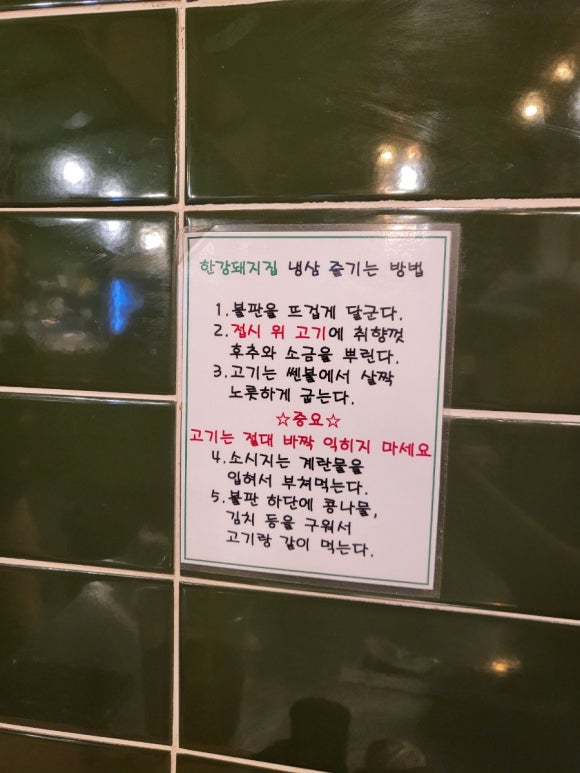 한강돼지집 냉삼 즐기는 방법
1. 불판을 뜨겁게 달군다.
2. 접시 위 고기에 취향껏
후추와 소금을 뿌린다.
3. 고기는 쎈불에서 살짝
노릇하게 굽는다.
☆중요☆
고기는 절대 바짝 익히지 마세요
4. 소시지는 계란물을
입혀서 부쳐먹는다.
5. 불판 하단에 콩나물,
김치 등을 구워서
고기랑 같이 먹는다.